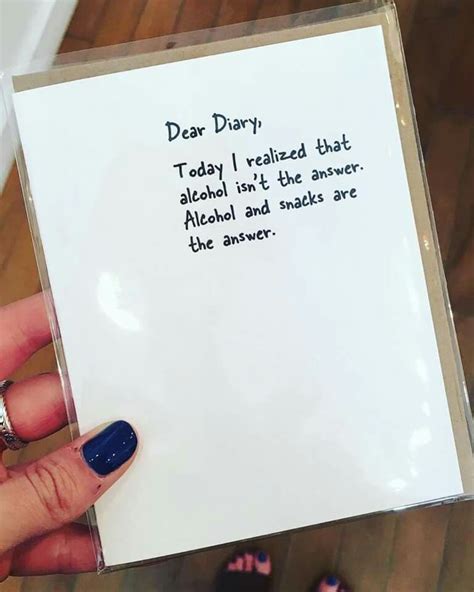 Dear Diary,
Today I realized that
alcohol isn't the answer.
Alcohol and snacks are
the answer.